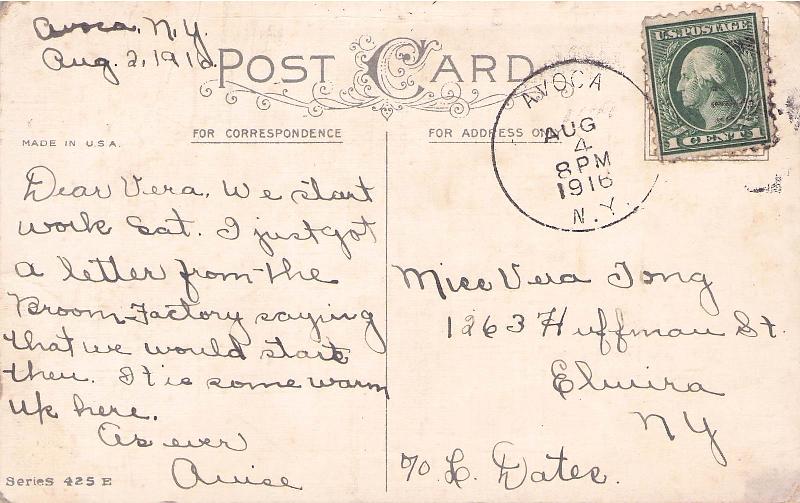 Avoca, N.Y.
Aug. 2, 1916.
POST CARD
U.S. POSTAGE
1 CENT 1
AVOCA
AUG
4
8 PM
1916
N.Y.
MADE IN U.S.A.
FOR CORRESPONDENCE
FOR ADDRESS ON
Dear Vera, We start
work Sat. I just got
a letter from the
Broom-Factory saying
that we would start
then. It is some warm
up here.
As ever
Series 425 E
Miss Vera Tong
1263 Huffman St.
Elmira
NY
c/o L. Dates.